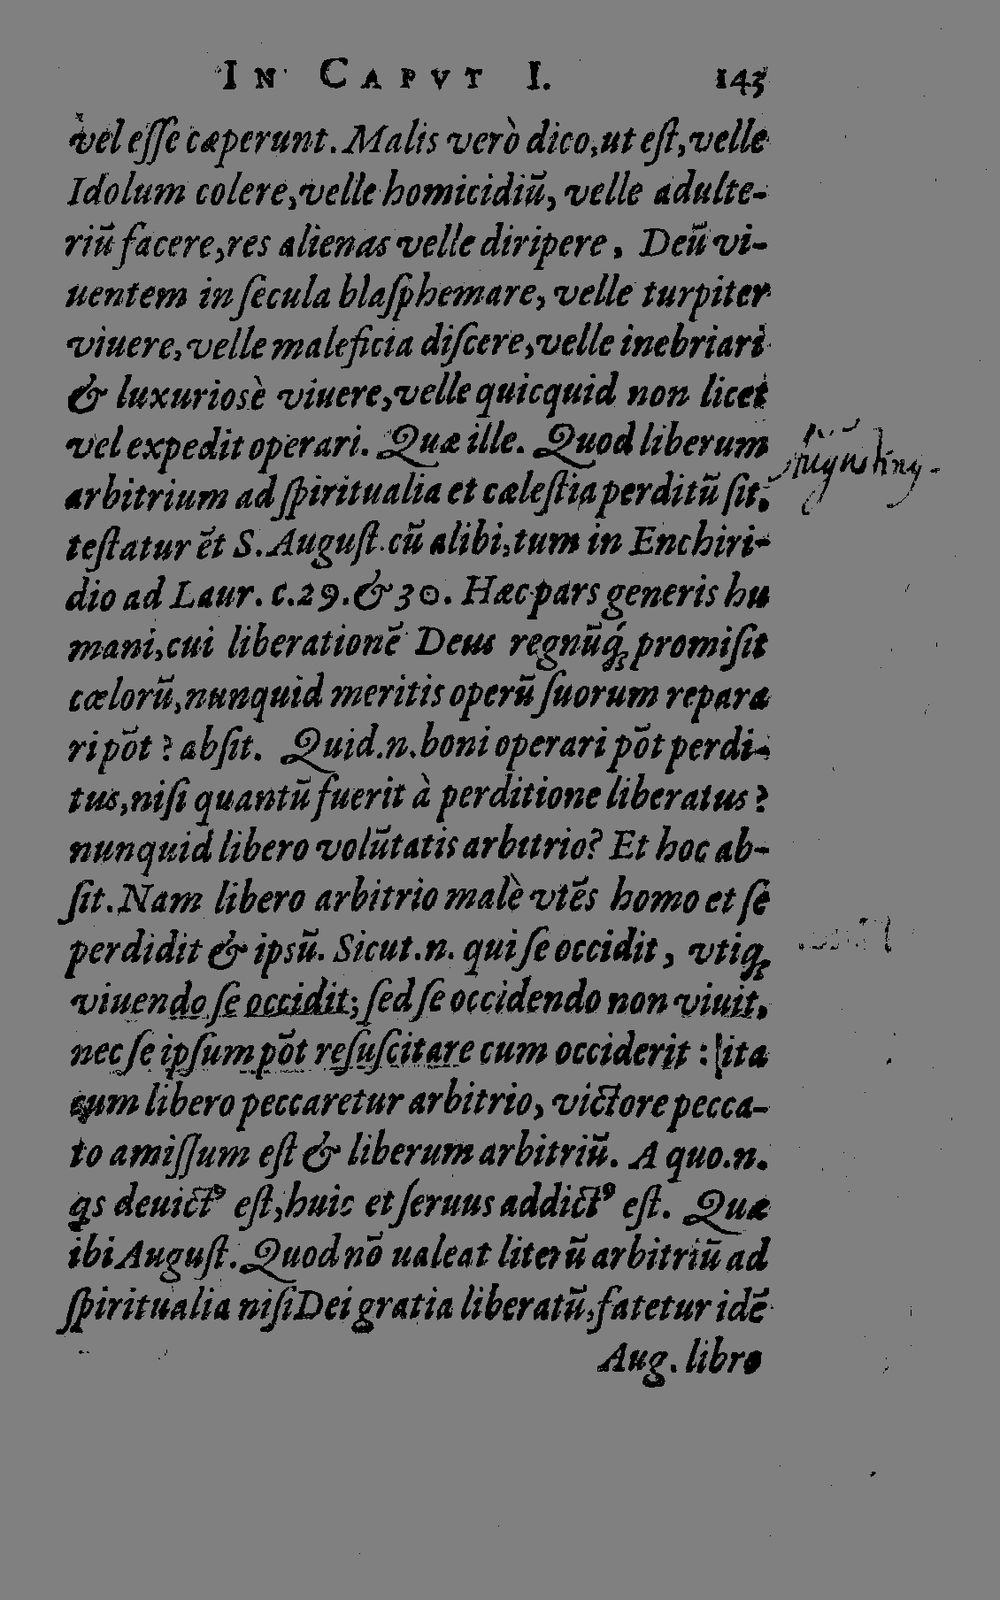 IN CAPVT I. 143
vel esse cæperunt. Malis verò dico, ut est, velle
Idolum colere, velle homicidiũ, velle adulte-
riũ facere, res alienas velle diripere, Deũ vi-
uentem in secula blasphemare, velle turpiter
viuere, velle maleficia discere, velle inebriari
& luxuriosè viuere, velle quicquid non licet
vel expedit operari. Quæ ille. Quod liberum
arbitrium ad spiritualia et cælestia perditũ sit,
testatur ẽt S. August. cũ alibi, tum in Enchiri-
dio ad Laur. c. 29. & 30. Hæc pars generis hu
mani, cui liberationẽ Deus regnũq́; promisit
cœlorũ, nunquid meritis operũ suorum repara
ri põt? absit. Quid .n. boni operari põt perdi-
tus, nisi quantũ fuerit à perditione liberatus?
nunquid libero volũtatis arbitrio? Et hoc ab-
sit. Nam libero arbitrio malè vtẽs homo et se
perdidit & ipsũ. Sicut .n. qui se occidit, vtiq;
viuendo se occidit; sed se occidendo non viuit,
nec se ipsum põt resuscitare cum occiderit: ita
cum libero peccaretur arbitrio, victore pecca-
to amissum est & liberum arbitriũ. A quo .n.
qs deuictꝰ est, huic et seruus addictꝰ est. Quæ
ibi August. Quod nõ ualeat literũ arbitriũ ad
spiritualia nisi Dei gratia liberatũ, fatetur idẽ
Aug. libro